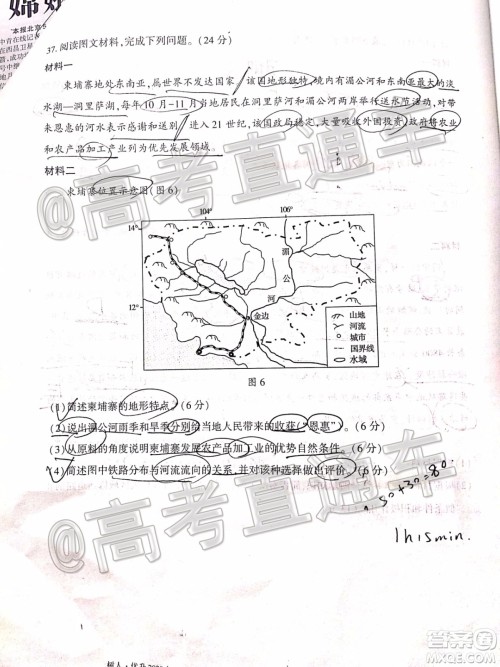 37. 阅读图文材料,完成下列问题。(24 分)
材料一
柬埔寨地处东南亚,属世界不发达国家,该国地形独特,境内有湄公河和东南亚最大的淡
水湖—洞里萨湖,每年 10 月-11 月当地居民在洞里萨河和湄公河两岸举行送水节活动,对带
来恩惠的河水表示感谢和送别;进入 21 世纪,该国政局稳定,大量吸收外国投资,政府将农业
和农产品加工产业列为优先发展领域。
材料二
柬埔寨位置示意图(图 6)
104° 106°
14°
湄
公
河
12°
金边
山地
河流
城市
国界线
水域
图 6
(1)简述柬埔寨的地形特点。(6 分)
(2)说出湄公河雨季和旱季分别给当地人民带来的收获(“恩惠”)。(6 分)
(3)从原料的角度说明柬埔寨发展农产品加工业的优势自然条件。(6 分)
(4)简述图中铁路分布与河流流向的关系,并对该种选择做出评价。(6 分)
50+30=80.
1h15min.
@高考直通车
@高考直通车
@高考直通车
答案圈